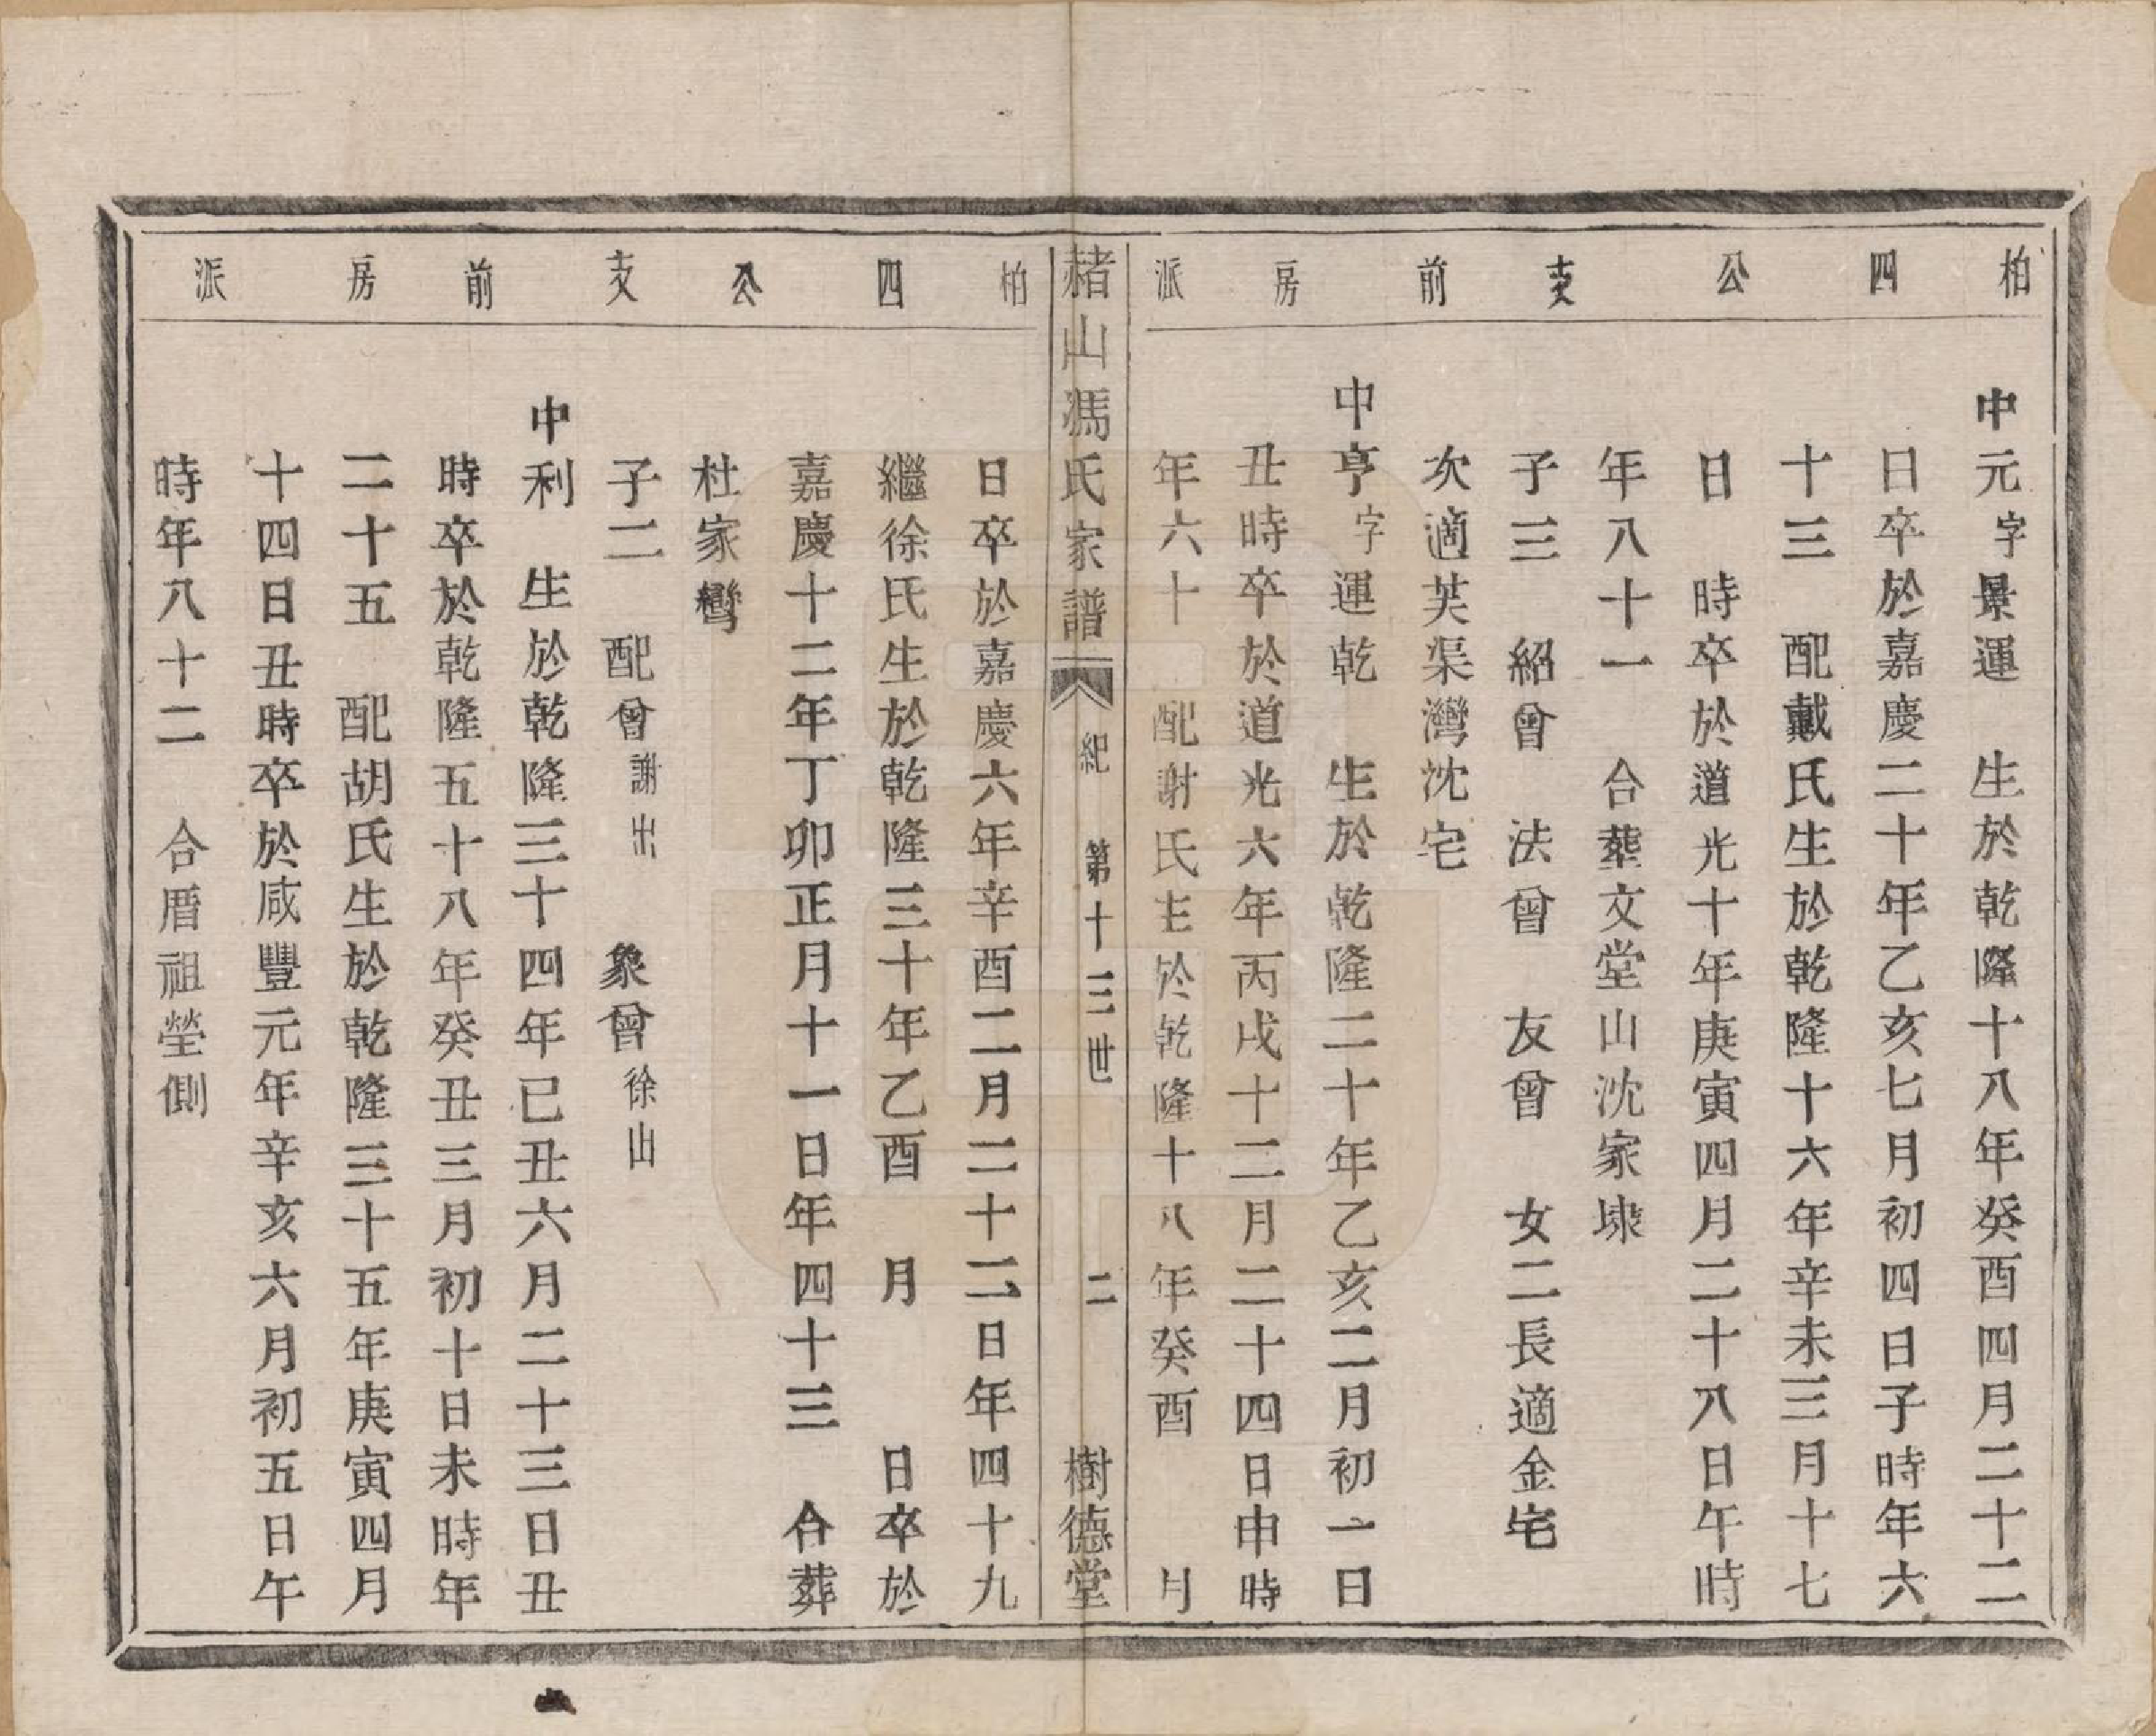 柏四公支前房派
中元字景運　生於乾隆十八年癸酉四月二十二
日卒於嘉慶二十年乙亥七月初四日子時年六
十三　配戴氏生於乾隆十六年辛未三月十七
日　時卒於道光十年庚寅四月二十八日午時
年八十一　合葬文堂山沈家埭
子三　紹曾　法曾　友曾　女二長適金宅
次適芙渠灣沈宅
中亨字運乾　生於乾隆二十年乙亥二月初一日
丑時卒於道光六年丙戌十二月二十四日申時
年六十　配謝氏生於乾隆十八年癸酉　月
赭山馮氏家譜　紀　第十三世　二　樹德堂
柏四公支前房派
日卒於嘉慶六年辛酉二月二十二日年四十九
繼徐氏生於乾隆三十年乙酉　月　日卒於
嘉慶十二年丁卯正月十一日年四十三　合葬
杜家彎
子二　配曾謝出　象曾徐出
中利　生於乾隆三十四年已丑六月二十三日丑
時卒於乾隆五十八年癸丑三月初十日未時年
二十五　配胡氏生於乾隆三十五年庚寅四月
十四日丑時卒於咸豐元年辛亥六月初五日午
時年八十二　合厝祖塋側